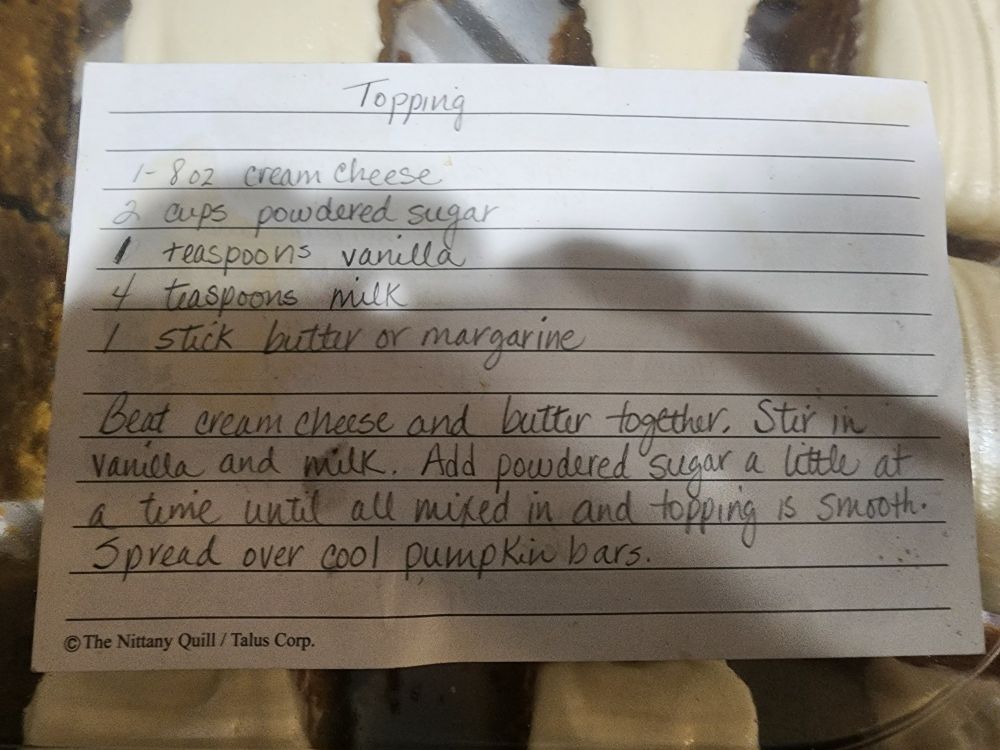 Topping
1- 8oz cream cheese
2 cups powdered sugar
1 teaspoons vanilla
4 teaspoons milk
1 stick butter or margarine
Beat cream cheese and butter together. Stir in
vanilla and milk. Add powdered sugar a little at
a time until all mixed in and topping is smooth.
Spread over cool pumpkin bars.
© The Nittany Quill / Talus Corp.